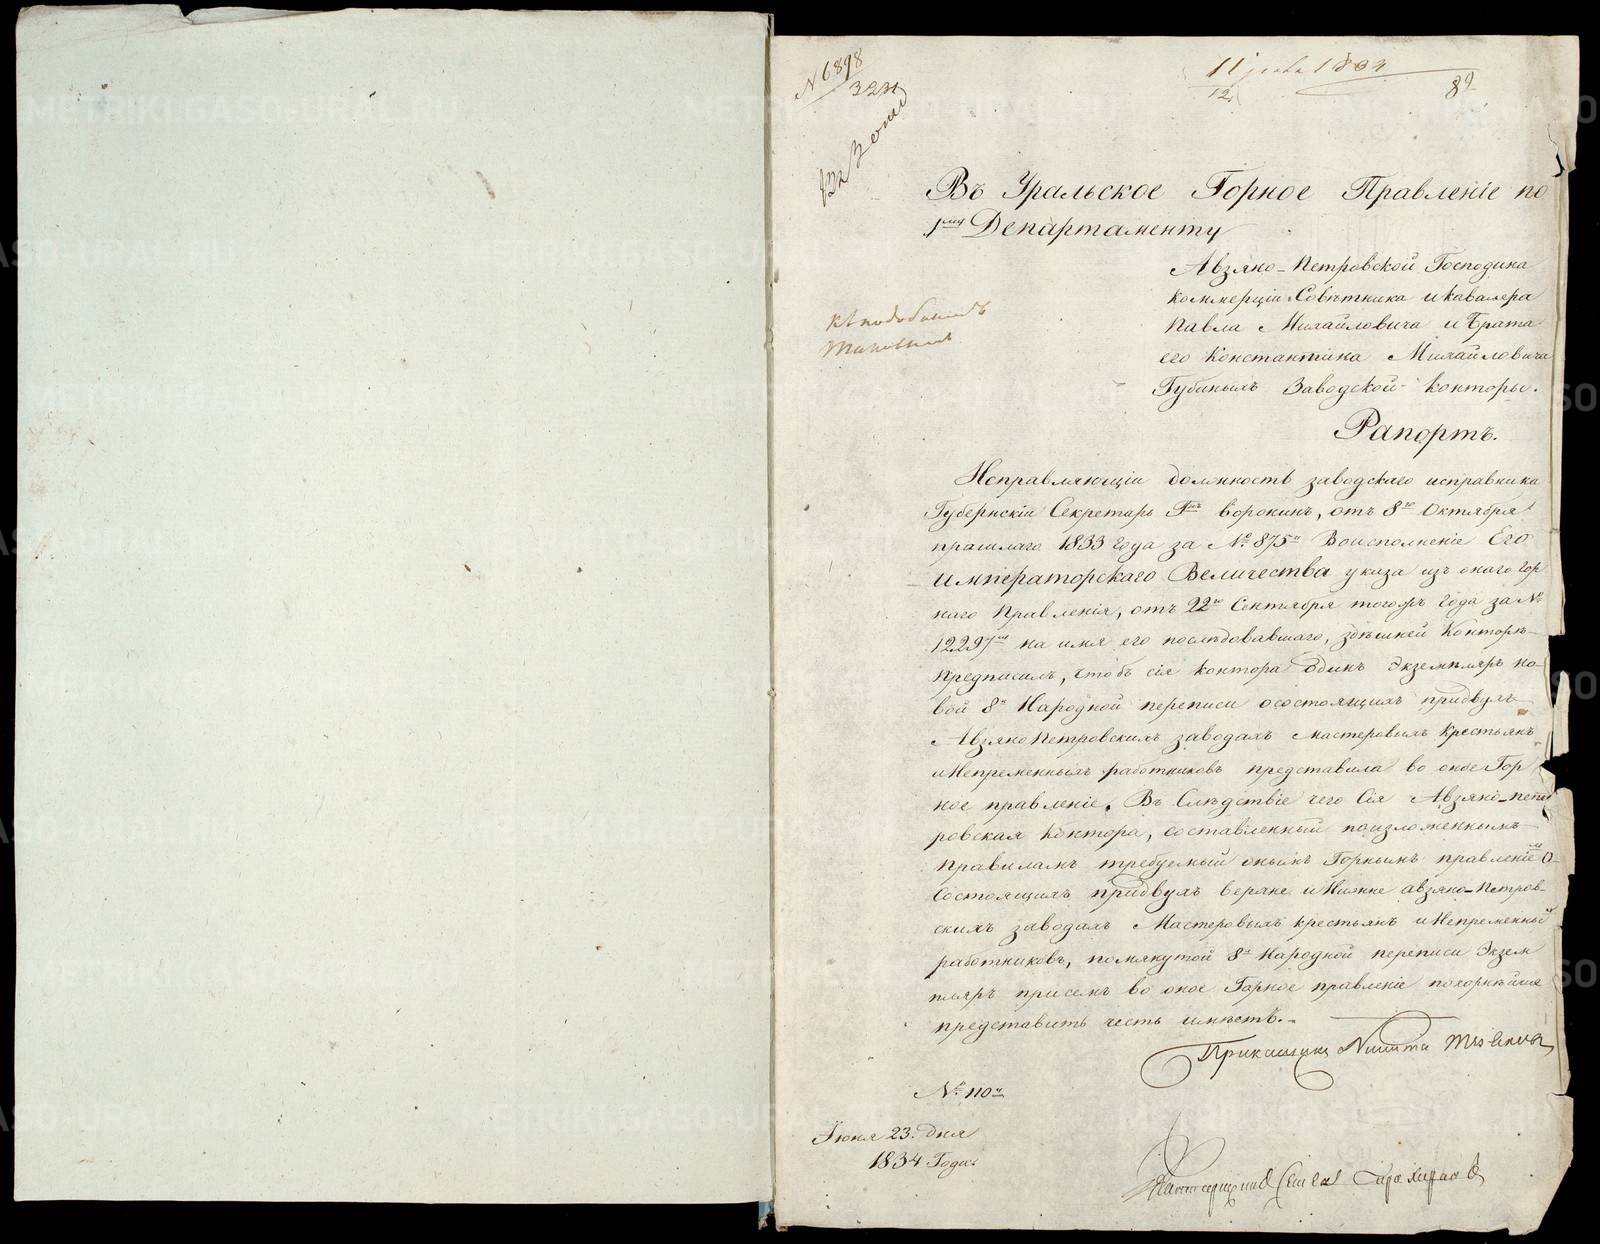 N 6898
3231
11 1834
12
89
Въ Уральское Горное Правленіе по
1му Департаменту
Авзяно-Петровской Господина
Коммерціи Совѣтника и Кавалера
Павла Михайловича и Брата
его Константина Михайловича
Губиныхъ Заводской конторы.
Рапортъ.
Исправляющіи должность заводскаго исправника
Губернскіи Секретарь Гнъ Воронинъ, отъ 8го Октября
прошлаго 1833 года за № 875м Воисполненіе Его
Императорскаго Величества указа изъ онаго Гор
наго Правленія, отъ 22го Сентября тогожъ года за №
12297мъ на имя его послѣдовавшаго, здѣшней Конторѣ
предписалъ, чтобъ сія контора одинъ экземпляръ но
вой 8й Народной переписи осостоящихъ придвухъ
АвзяноПетровскихъ заводахъ мастеровыхъ крестьянъ
иНепременныхъ работниковъ представила во оное Гор
ное правленіе. Въ Слѣдствіе чего Сія Авзяно-пет
ровская Контора, составленный поизложеннымъ
правиламъ требуемый онымъ Горнымъ правленіемъ о
Состоящихъ придвухъ верхне иНижне авзяно-Петров-
скихъ заводахъ Мастеровыхъ крестьянъ иНепременныхъ
работниковъ, помянутой 8й Народной переписи Экзем
пляръ присемъ во оное Горное правленіе покорнѣйше
представить честь имѣетъ.-
Прикащикъ Никита
№ 110й
Июня 23. дня
1834 Года.